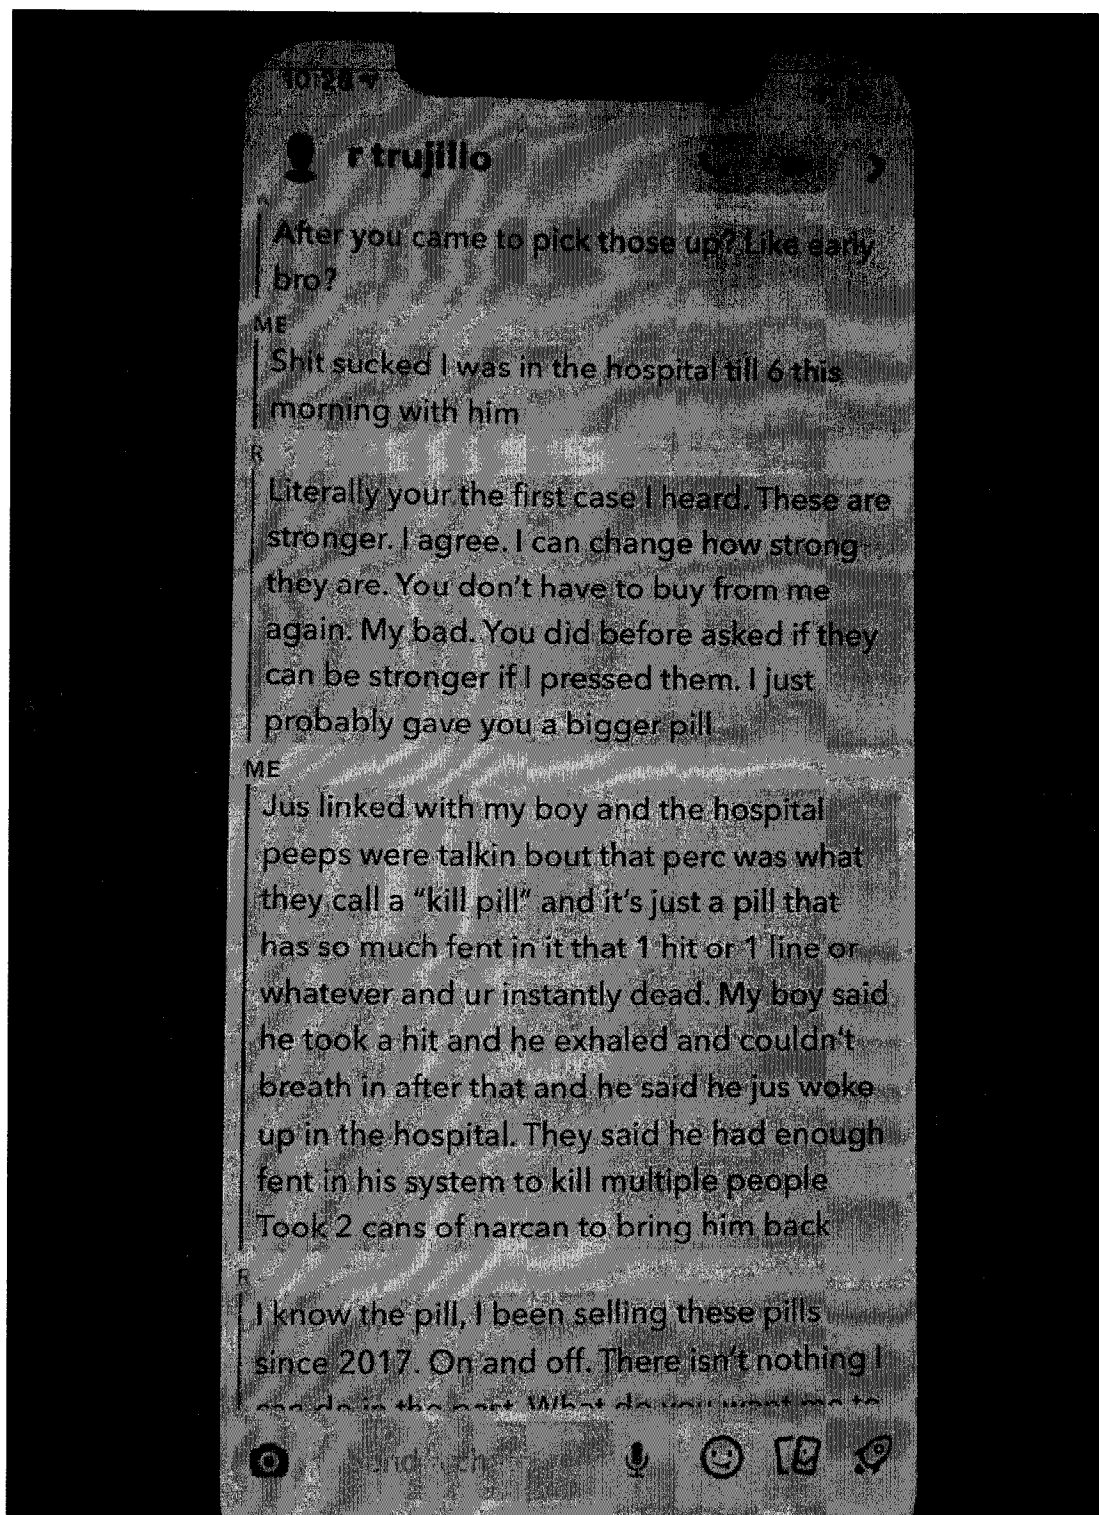 10:28
r trujillo
After you came to pick those up? Like early
bro?
ME
Shit sucked I was in the hospital till 6 this
morning with him
R
Literally your the first case I heard. These are
stronger. I agree. I can change how strong
they are. You don't have to buy from me
again. My bad. You did before asked if they
can be stronger if I pressed them. I just
probably gave you a bigger pill
ME
Jus linked with my boy and the hospital
peeps were talkin bout that perc was what
they call a "kill pill" and it's just a pill that
has so much fent in it that 1 hit or 1 line or
whatever and ur instantly dead. My boy said
he took a hit and he exhaled and couldn't
breath in after that and he said he jus woke
up in the hospital. They said he had enough
fent in his system to kill multiple people
Took 2 cans of narcan to bring him back
R
I know the pill, I been selling these pills
since 2017. On and off. There isn't nothing I
can do in the past. What do you want me to